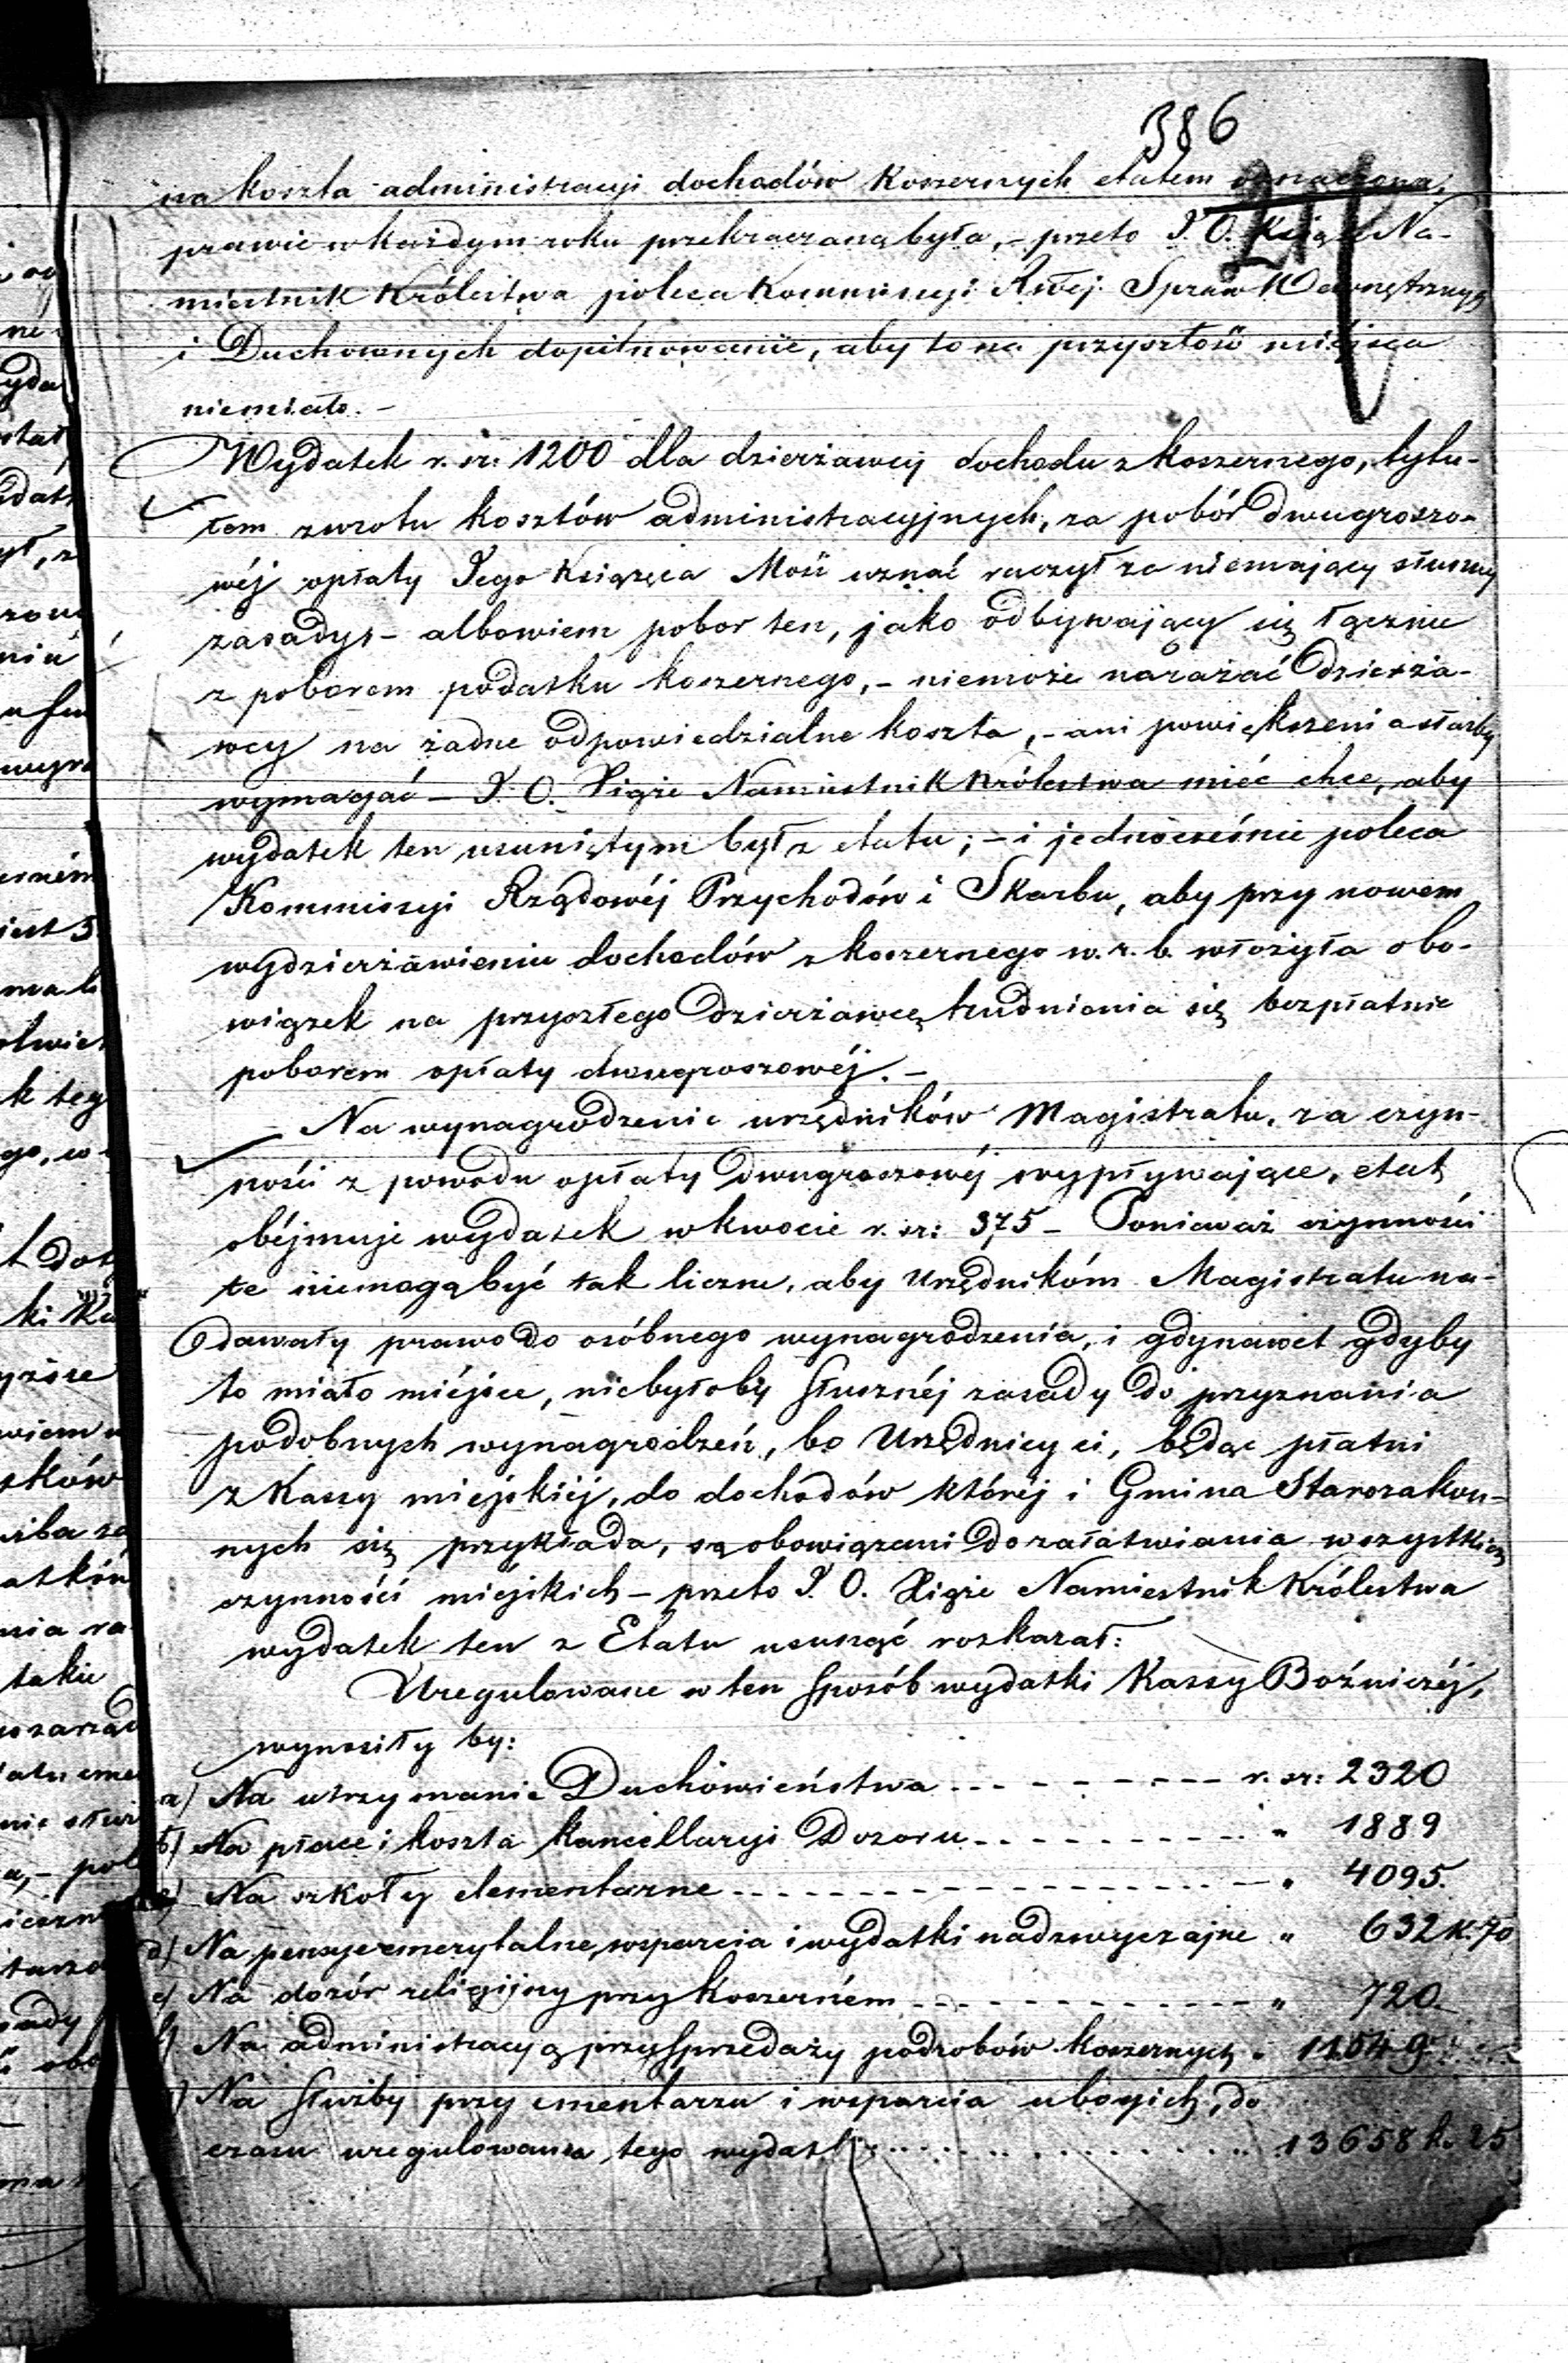 386
na koszta administracyi dochodów Koszernych etatem oznaczona,
prawie w każdym roku przekraczaną była, – przeto J. O. Książe Na-
miestnik Królestwa poleca Kommissyi Rwéj Spraw Wewnętrznych
i Duchownych dopilnowanie, aby to na przyszłość miéjsca
niemiało. –
Wydatek r. sr: 1200 dla dzierżawcy dochodu z koszernego, tytu-
łem zwrotu kosztów administracyjnych, za pobór dwugroszo-
wéj opłaty Jego Książęca Mość uznać raczył za niemający słusznéj
zasady, – albowiem pobor ten, jako odbywający się łącznie
z poborem podatku koszernego, – niemoże narażać Dzierża-
wcy na żadne odpowiedzialne koszta, – ani powiększenia służby
wymagać – J. O. Xiąże Namiestnik Królestwa mieć chce, aby
wydatek ten usuniętym był z etatu; – i jednocześnie poleca
Kommissyi Rządowéj Przychodów i Skarbu, aby przy nowem
wydzierżawieniu dochodów z koszernego w. r. b. włożyła obo-
wiązek na przyszłego Dzierżawcę trudnienia się bezpłatnie
poborem opłaty dwugroszowéj. –
– Na wynagrodzenie urzędników Magistratu, za czyn-
ności z powodu opłaty Dwugroszowéj wypływające, etat
obéjmuje wydatek w kwocie r. sr: 375 – Ponieważ czynności
te niemogą być tak liczne, aby Urzędnikóm Magistratu na-
dawały prawo do osóbnego wynagrodzenia, i gdy nawet gdyby
to miało miéjsce, niebyłoby słusznéj zasady do przyznania
podobnych wynagrodzeń, bo Urzędnicy ci, będąc płatni
z Kassy miejskiéj, do dochodów któréj i Gmina Starozakon-
nych się przykłada, są obowiązani do załatwiania wszystkich
czynności miéjskich – przeto J. O. Xiąże Namiestnik Królestwa
wydatek ten z Etatu usunąć rozkazał:
Uregulowane w ten sposób wydatki Kassy Bożniczéj,
wynosiły by:
a) Na utrzymanie Duchówieństwa r. sr: 2320
b) Na płace i koszta kancellaryi Dozoru „ 1889
c) Na szkoły elementarne „ 4095.
d) Na pensye emerytalne, wsparcia i wydatki nadzwyczajne „ 632 k. 70
e) Na dozór religijny przy Koszerném „ 720 –
f) Na administracyą przy sprzedaży podrobów koszernych „ 11549
g) Na służby przy cmentarzu i wsparcia ubogich, do
czasu uregulowania tego wydatku „ 13658 k. 25